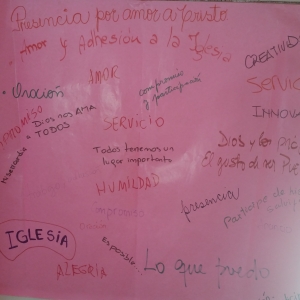 Presencia por amor a Cristo
• Amor y Adhesión a la Iglesia
CREATIVID
AMOR
• Oración
compromiso
y participación
SERVIC
INNOVA
Dios nos AMA
• TODOS
SERVICIO
Todos tenemos un
lugar importante
Dios y los
El gusto de ser Pue
HUMILDAD
presencia
Participe de
IGLESIA
ALEGRIA
Lo que puedo